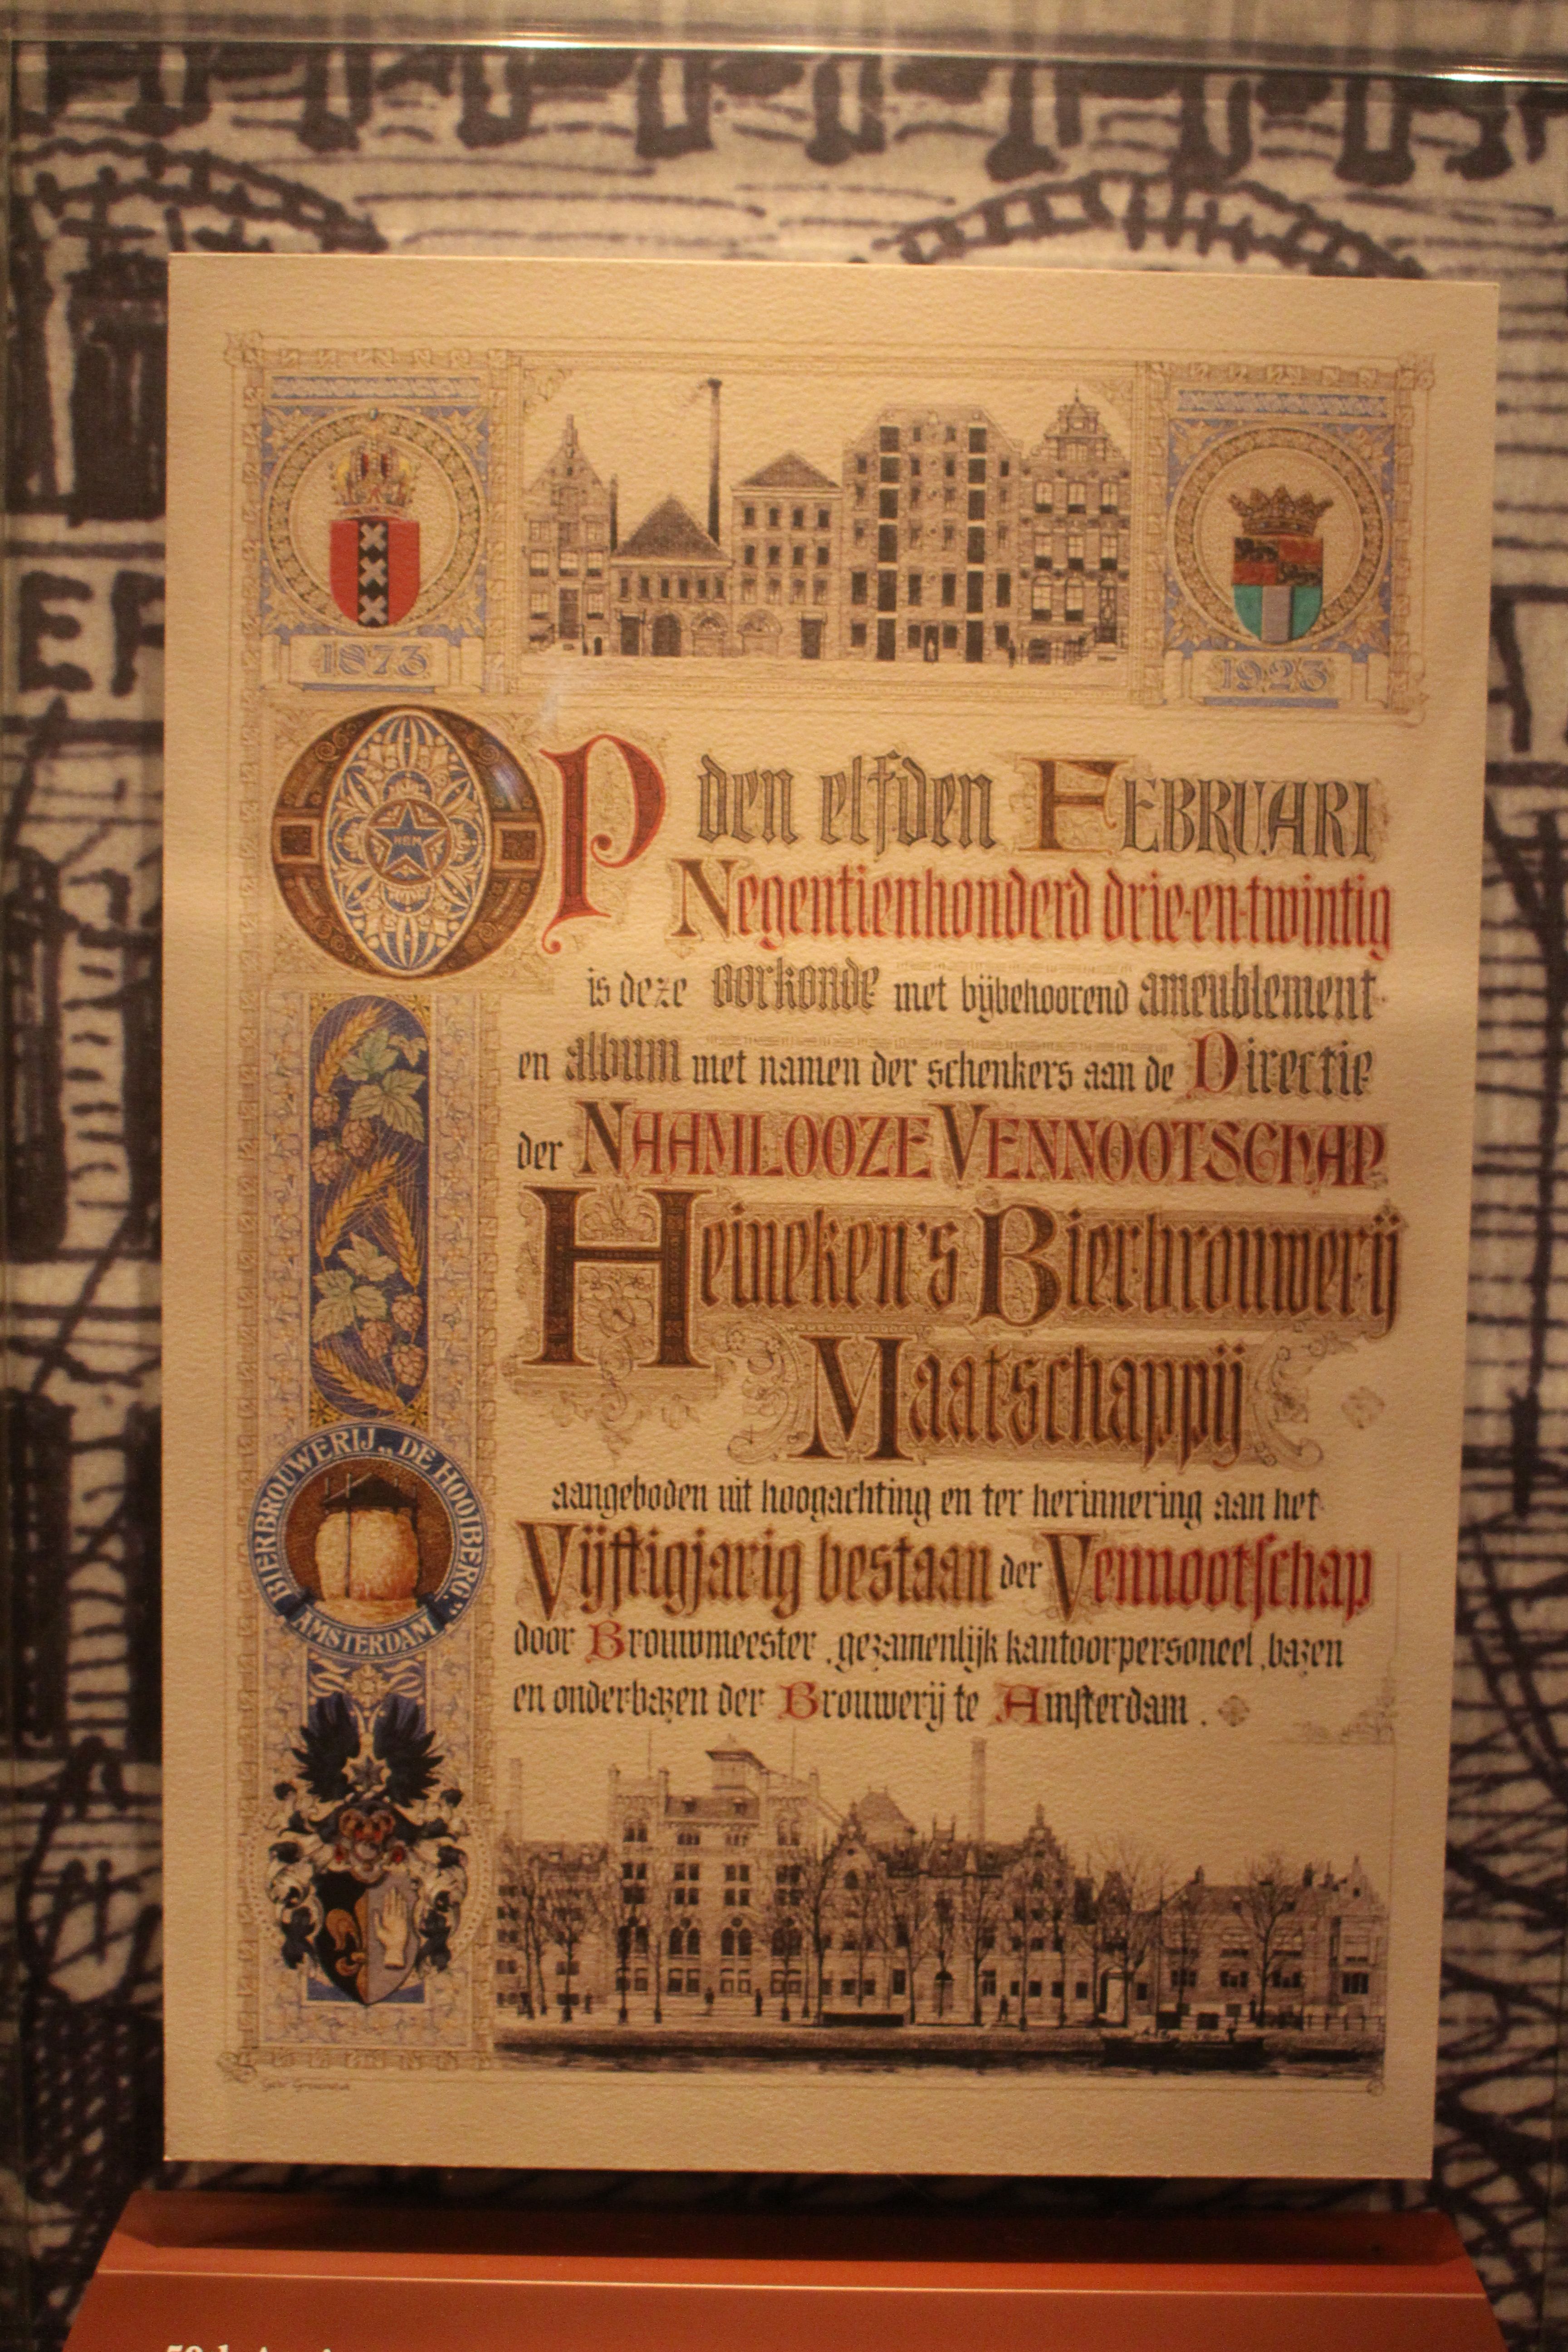 1873
1923
Op den elfden Februari
Negentienhonderd drie-en-twintig
is deze oorkonde met bijbehoorend ameublement
en album met namen der schenkers aan de Directie
der NAAMLOOZE VENNOOTSCHAP
Heineken's Bierbrouwerij
Maatschappij
aangeboden uit hoogachting en ter herinnering aan het
Vijftigjarig bestaan der Vennootschap
door Brouwmeester, gezamenlijk kantoorpersoneel, bazen
en onderbazen der Brouwerij te Amsterdam.
HBM
BIERBROUWERIJ „DE HOOIBERG."
AMSTERDAM